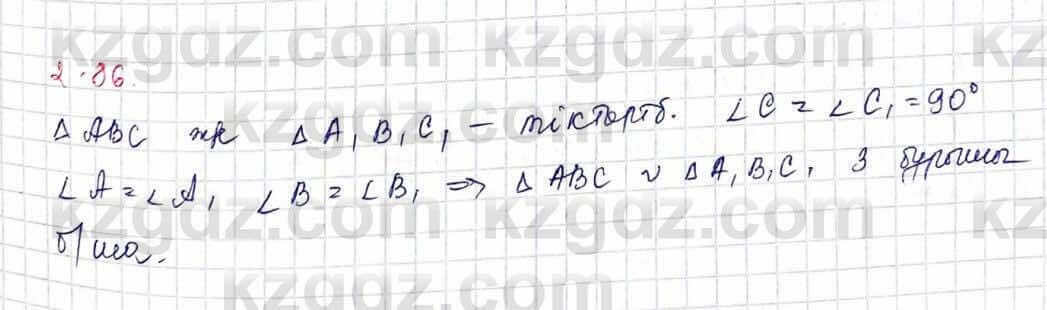 kzgdz.com kzgdz.com kz
2.86.
△ ABC  және △ A₁B₁C₁ – тіктөртб. ∠C = ∠C₁ = 90°
∠A = ∠A₁ ∠B = ∠B₁ ⇒ △ ABC ∼ △ A₁B₁C₁ 3 бұрышы
kzgdz.com kzgdz.com kz
б/ша.
kzgdz.com